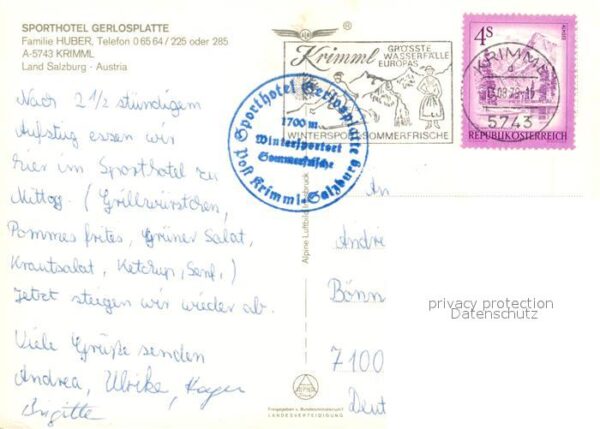 SPORTHOTEL GERLOSPLATTE
Familie HUBER, Telefon 0 65 64 / 225 oder 285
A-5743 KRIMML
Land Salzburg - Austria
Nach 2 1/2 stündigem
Aufstieg essen wir
hier im Sporthotel zu
Mittag. (Grillwürstchen,
Pommes frites, Grüner Salat,
Krautsalat, Ketchup, Senf.)
Jetzt steigen wir wieder ab.
Viele Grüße senden
Andrea, Ulrike, Holger
Brigitte
®
Krimml GRÖSSTE
WASSERFÄLLE
EUROPAS
WINTERSPORT SOMMERFRISCHE
Sporthotel Gerlosplatte
1700 m
Wintersportort
Sommerfrische
Post Krimml-Salzburg
4S
ALMSEE
REPUBLIK ÖSTERREICH
KRIMML
5743
Alpine Luftbild Innsbruck
An
Andre
Bönn
7100
Deut
privacy protection
Datenschutz
Freigegeben v. Bundesministerium f.
LANDESVERTEIDIGUNG